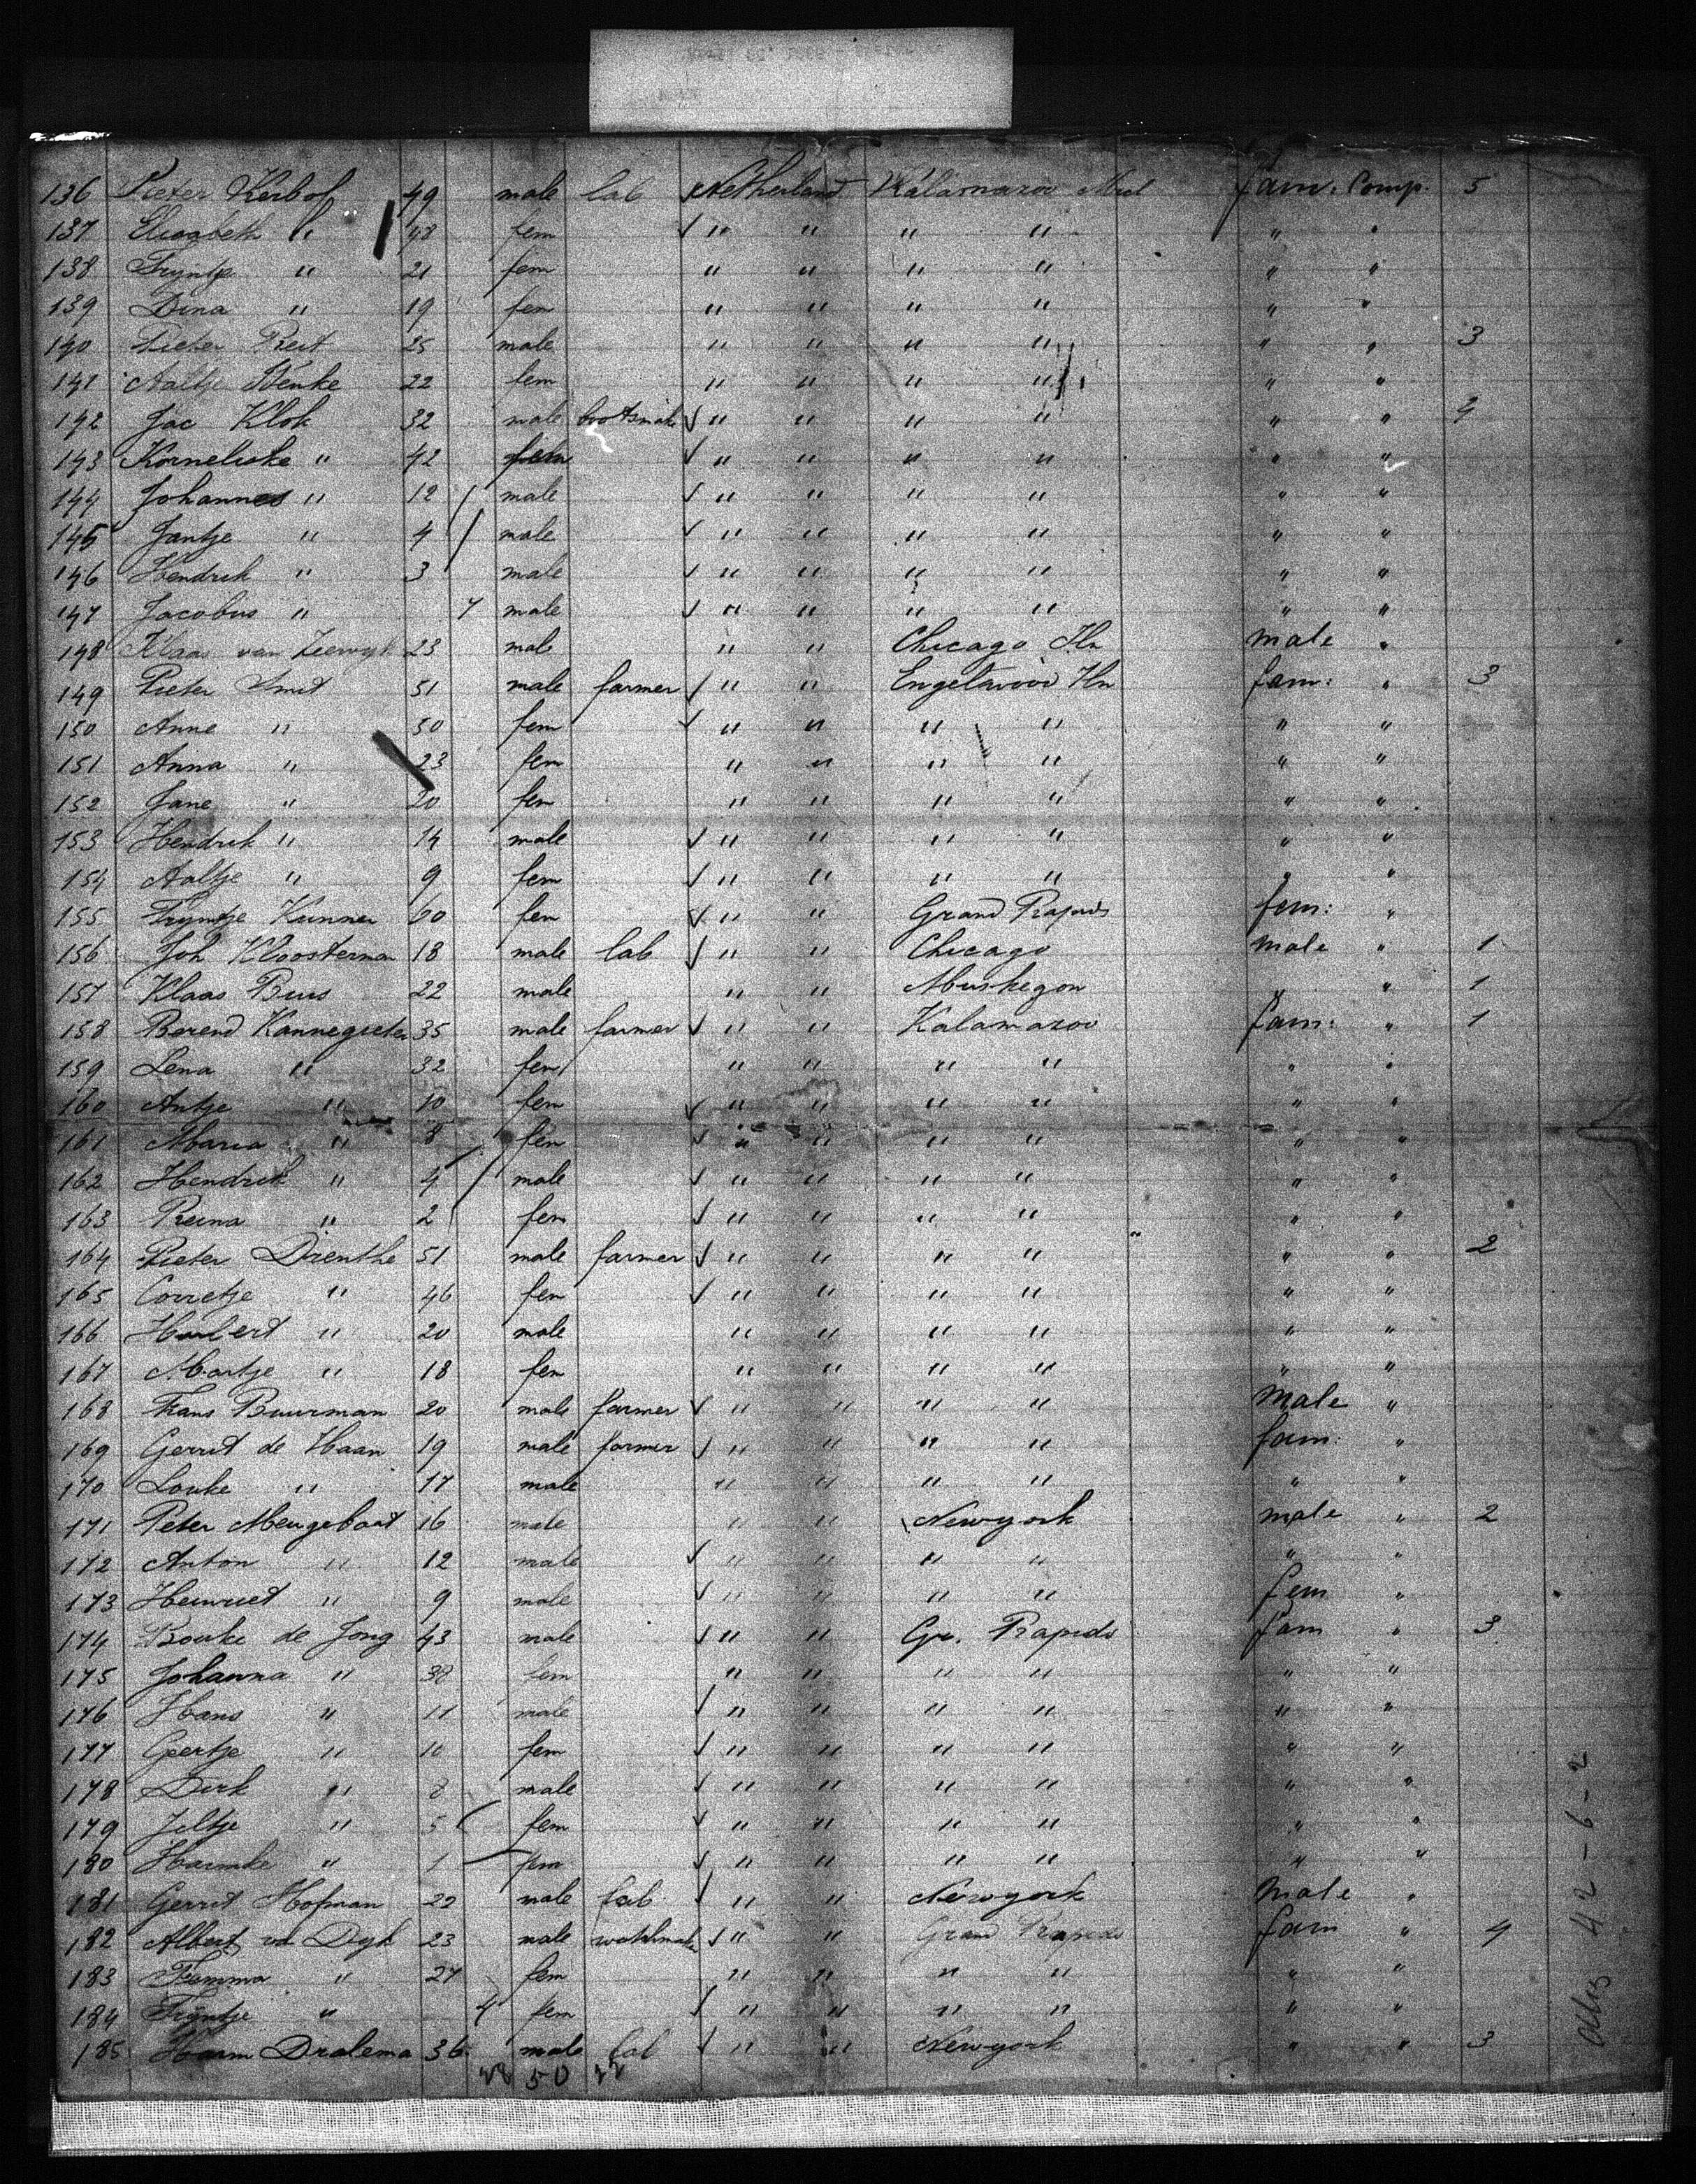 136 Pieter Kerbol 49 male lab Netherland Kalamazoo Mich fam. Comp. 5
137 Elisabeth " 48 fem " " " " " "
138 Tryntje " 21 fem " " " " " "
139 Dina " 19 fem " " " " " "
140 Pieter 25 male " " " " " " 3
141 Aaltje 22 fem " " " " " "
142 Jac Klok 32 male bootsmak " " " " " "
143 Korneliske " 42 fem " " " " " "
144 Johannes " 12 male " " " " " "
145 Jantje " 4 male " " " " " "
146 Hendrik " 3 male " " " " " "
147 Jacobus " 7 male " " " " " "
148 Klaas van Zeewyk 23 male " " Chicago Iln male "
149 Pieter Smit 51 male farmer " " Engelwood Iln fam: " 3
150 Anne " 50 fem " " " " " "
151 Anna " 23 fem " " " " " "
152 Jane " 20 fem " " " " " "
153 Hendrik " 14 male " " " " " "
154 Aaltje " 9 fem " " " " " "
155 Tryntje Kunner 60 fem " " Grand Rapids fem: "
156 Joh Kloosterman 18 male lab " " Chicago male " 1
157 Klaas Buis 22 male " " Muskegon " " 1
158 Berend Kannegieter 35 male farmer " " Kalamazoo fam: " 1
159 Lena " 32 fem " " " " " "
160 Antje " 10 fem " " " " " "
161 Maria " 8 fem " " " " " "
162 Hendrik " 4 male " " " " " "
163 Reina " 2 fem " " " " " "
164 Pieter Drenthe 51 male farmer " " " " " " 2
165 Corretje " 46 fem " " " " " "
166 Huibert " 20 male " " " " " "
167 Martje " 18 fem " " " " " "
168 Frans Buurman 20 male farmer " " " " Male "
169 Gerrit de Haan 19 male farmer " " " " fam: "
170 Louke " 17 male " " " " " "
171 Peter Meugeboat 16 male " " Newyork male " 2
172 Anton " 12 male " " " " " "
173 Henriet " 9 male " " " " fem "
174 Bouke de Jong 43 male " " Gr. Rapids fam " 3
175 Johanna " 38 fem " " " " " "
176 Hans " 11 male " " " " " "
177 Geertje " 10 fem " " " " " "
178 Dirk " 8 male " " " " " "
179 Jeltje " 5 fem " " " " " "
180 Harmke " 1 fem " " " " " "
181 Gerrit Hofman 22 male lab " " Newyork Male "
182 Albert vd Dyk 23 male watchmak " " Grand Rapids fam " 4
183 Femma " 27 fem " " " " " "
184 Tryntje " 4 fem " " " " " "
185 Harm Dralema 36 male lab " " Newyork " " 3
28 50 22
42-6-2